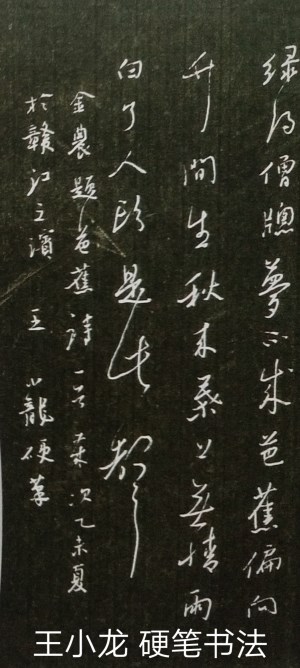 绿得僧牕夢不成芭蕉偏向
竹間生秋来葉上無情雨
白了人頭是此聲
金農題芭蕉詩一首歲次乙未夏
於赣江之濱 王小龍硬筆
王小龙 硬笔书法